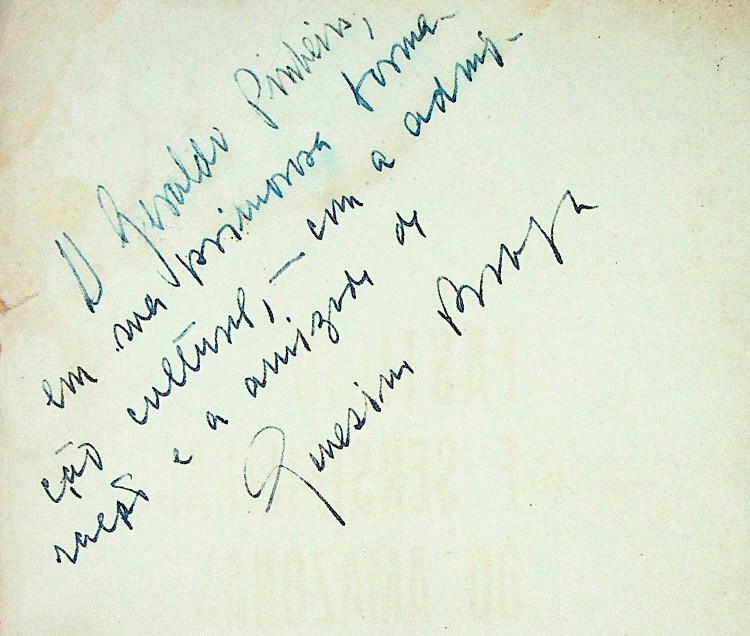 A Geraldo Pinheiro,
em sua primorosa forma-
ção cultural, — com a admi-
ração e a amizade de
Genesino Braga